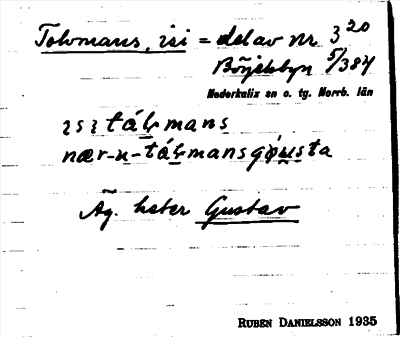 Tolvmans, isi = del av nr 3²⁰
Börjelsbyn 5/384
Nederkalix sn o. tg. Norrb. län
ısı tálv̥mans
nær-n-tálv̥mansgǿusta
Äg. heter Gustav
RUBEN DANIELSSON 1935